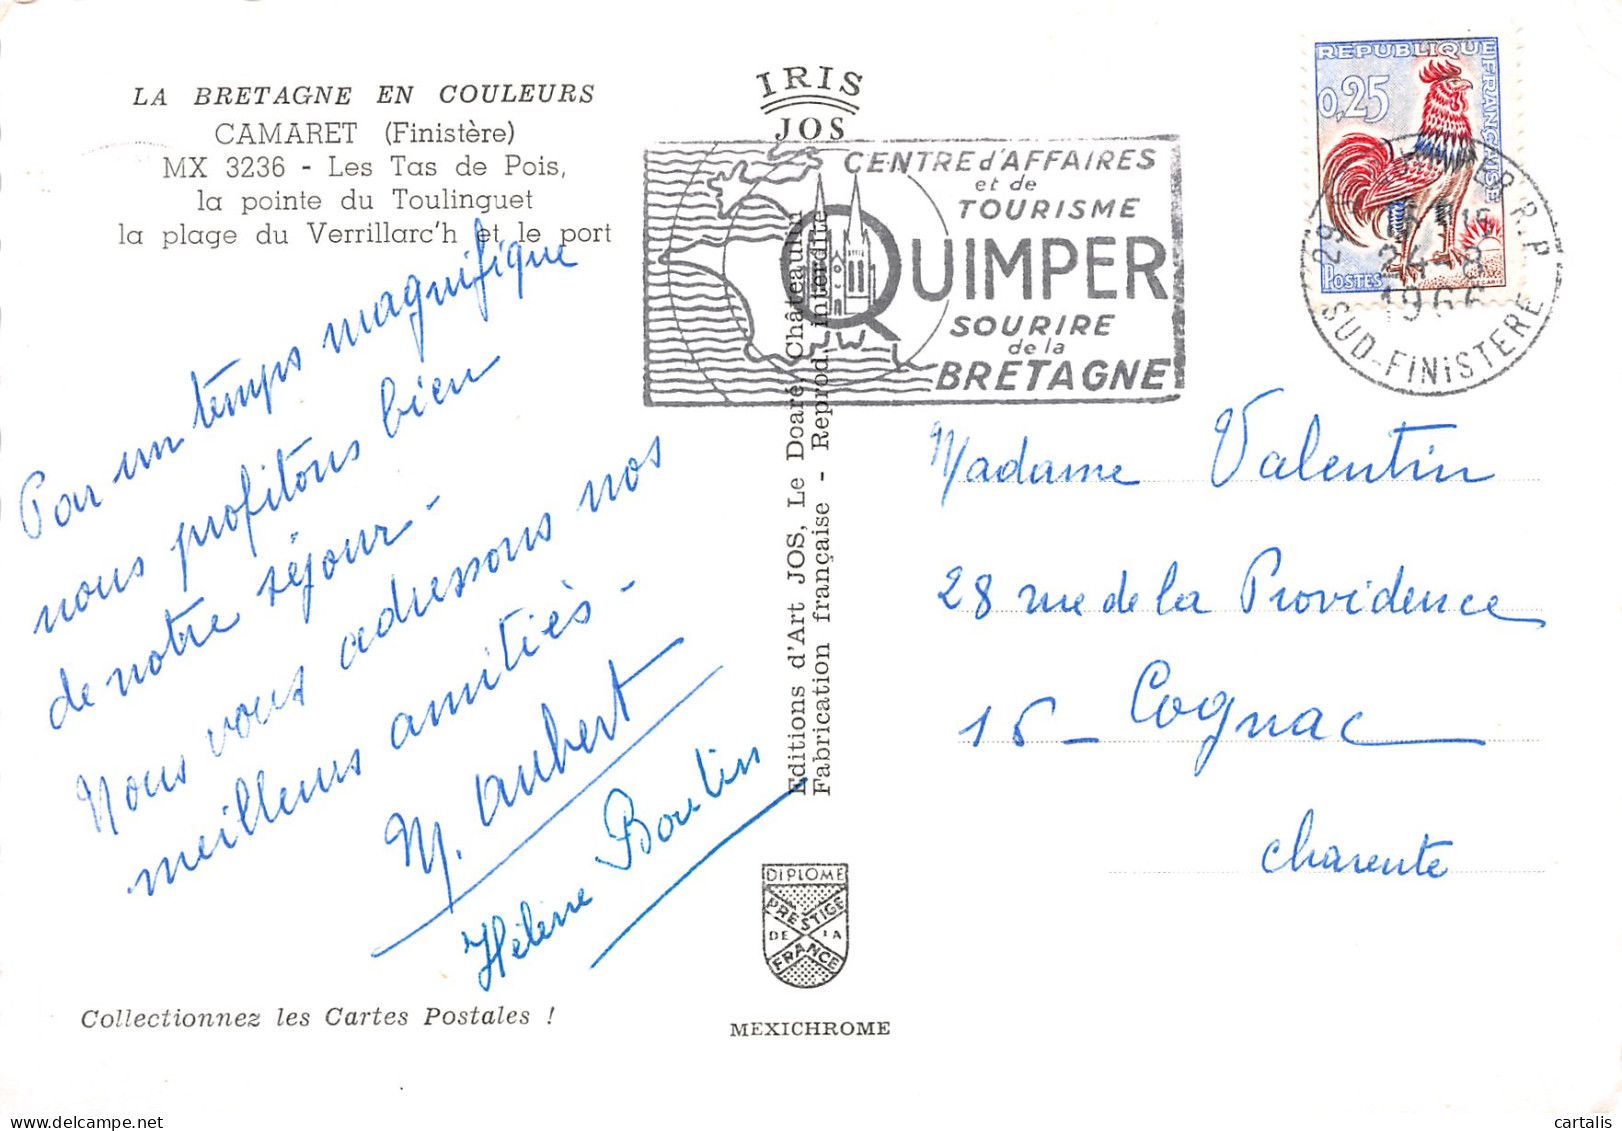 LA BRETAGNE EN COULEURS
CAMARET (Finistère)
MX 3236 - Les Tas de Pois,
la pointe du Toulinguet
la plage du Verrillarc'h et le port
Pour un temps magnifique
nous profitons bien
de notre séjour -
Nous vous adressons nos
meilleurs amitiés -
M. Aubert
Hélène Boutin
Collectionnez les Cartes Postales !
IRIS
JOS
CENTRE d'AFFAIRES
et de
TOURISME
QUIMPER
SOURIRE
de la
BRETAGNE
Editions d'Art JOS, Le Doaré, Châteaulin
Fabrication française - Reprod. interdite
DIPLOME
PRESTIGE
DE LA
FRANCE
MEXICHROME
REPUBLIQUE FRANÇAISE
0,25
POSTES
29 QUIMPER R.P
1966
SUD-FINISTERE
Madame Valentin
28 rue de la Providence
16 - Cognac
Charente
cartalis